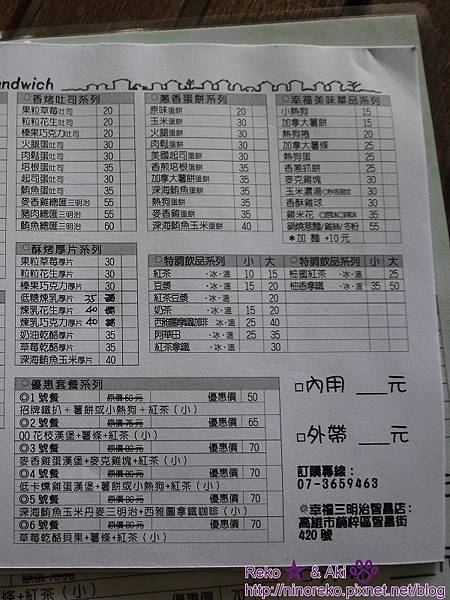 andwich
◎香烤吐司系列
果粒草莓吐司 20
粒粒花生吐司 20
榛果巧克力吐司 20
火腿蛋吐司 30
肉鬆蛋吐司 30
培根蛋吐司 35
起司蛋吐司 30
鮪魚蛋吐司 35
麥香雞總匯三明治 55
豬肉總匯三明治 55
鮪魚總匯三明治 60
◎酥烤厚片系列
果粒草莓厚片 30
粒粒花生厚片 30
榛果巧克力厚片 30
低糖煉乳厚片 35
煉乳花生厚片 40
煉乳巧克力厚片 40
奶油乾酪厚片 35
草莓乾酪厚片 35
深海鮪魚玉米厚片 35
◎蔥香蛋餅系列
原味蛋餅 20
玉米蛋餅 30
火腿蛋餅 30
肉鬆蛋餅 30
美國起司蛋餅 30
香煎培根蛋餅 35
加拿大薯餅蛋餅 35
深海鮪魚蛋餅 35
熱狗蛋餅 30
麥香雞蛋餅 35
深海鮪魚玉米蛋餅 40
◎幸福美味單品系列
小熱狗 15
加拿大薯餅 15
熱狗捲 20
加拿大薯條
熱狗蛋
香蔥抓餅
麥克雞塊 30
玉米濃湯
香酥雞球
雞米花
鍋燒意麵/雞絲/冬粉 55
*加麵+10元
◎特調飲品系列 小 大
紅茶 ·冰·溫 10 15
豆漿 ·冰·溫 15 20
紅茶豆漿 ·冰·溫 20
奶茶 ·冰·溫 15 20
西雅圖拿鐵咖啡 ·冰·溫 25 40
阿華田 ·冰·溫 25 35
紅茶拿鐵 ·冰·溫 30
◎特調飲品系列 小 大
柚蜜紅茶 ·冰·溫 25
柚香拿鐵 ·冰·溫 35 50
◎優惠套餐系列
◎1號餐 原價60元 優惠價 50
招牌鐵扒+薯餅或小熱狗+紅茶(小)
◎2號餐 原價75元 優惠價 65
QQ花枝漢堡+薯條+紅茶(小)
◎3號餐 原價80元 優惠價 70
麥香雞蛋漢堡+麥克雞塊+紅茶(小)
◎4號餐 原價80元 優惠價 70
低卡燻雞蛋漢堡+薯餅或小熱狗+紅茶(小)
◎5號餐 優惠價 70
深海鮪魚玉米丹麥三明治+西雅圖拿鐵咖啡(小)
◎6號餐 原價80元 優惠價 70
草莓乾酪貝果+薯條+紅茶(小)
□內用 ___元
□外帶 ___元
訂購專線:
07-3659463
◎幸福三明治智昌店:
高雄市楠梓區智昌街
420號
Reko ★ & Aki
http://ninoreko.pixnet.net/blog